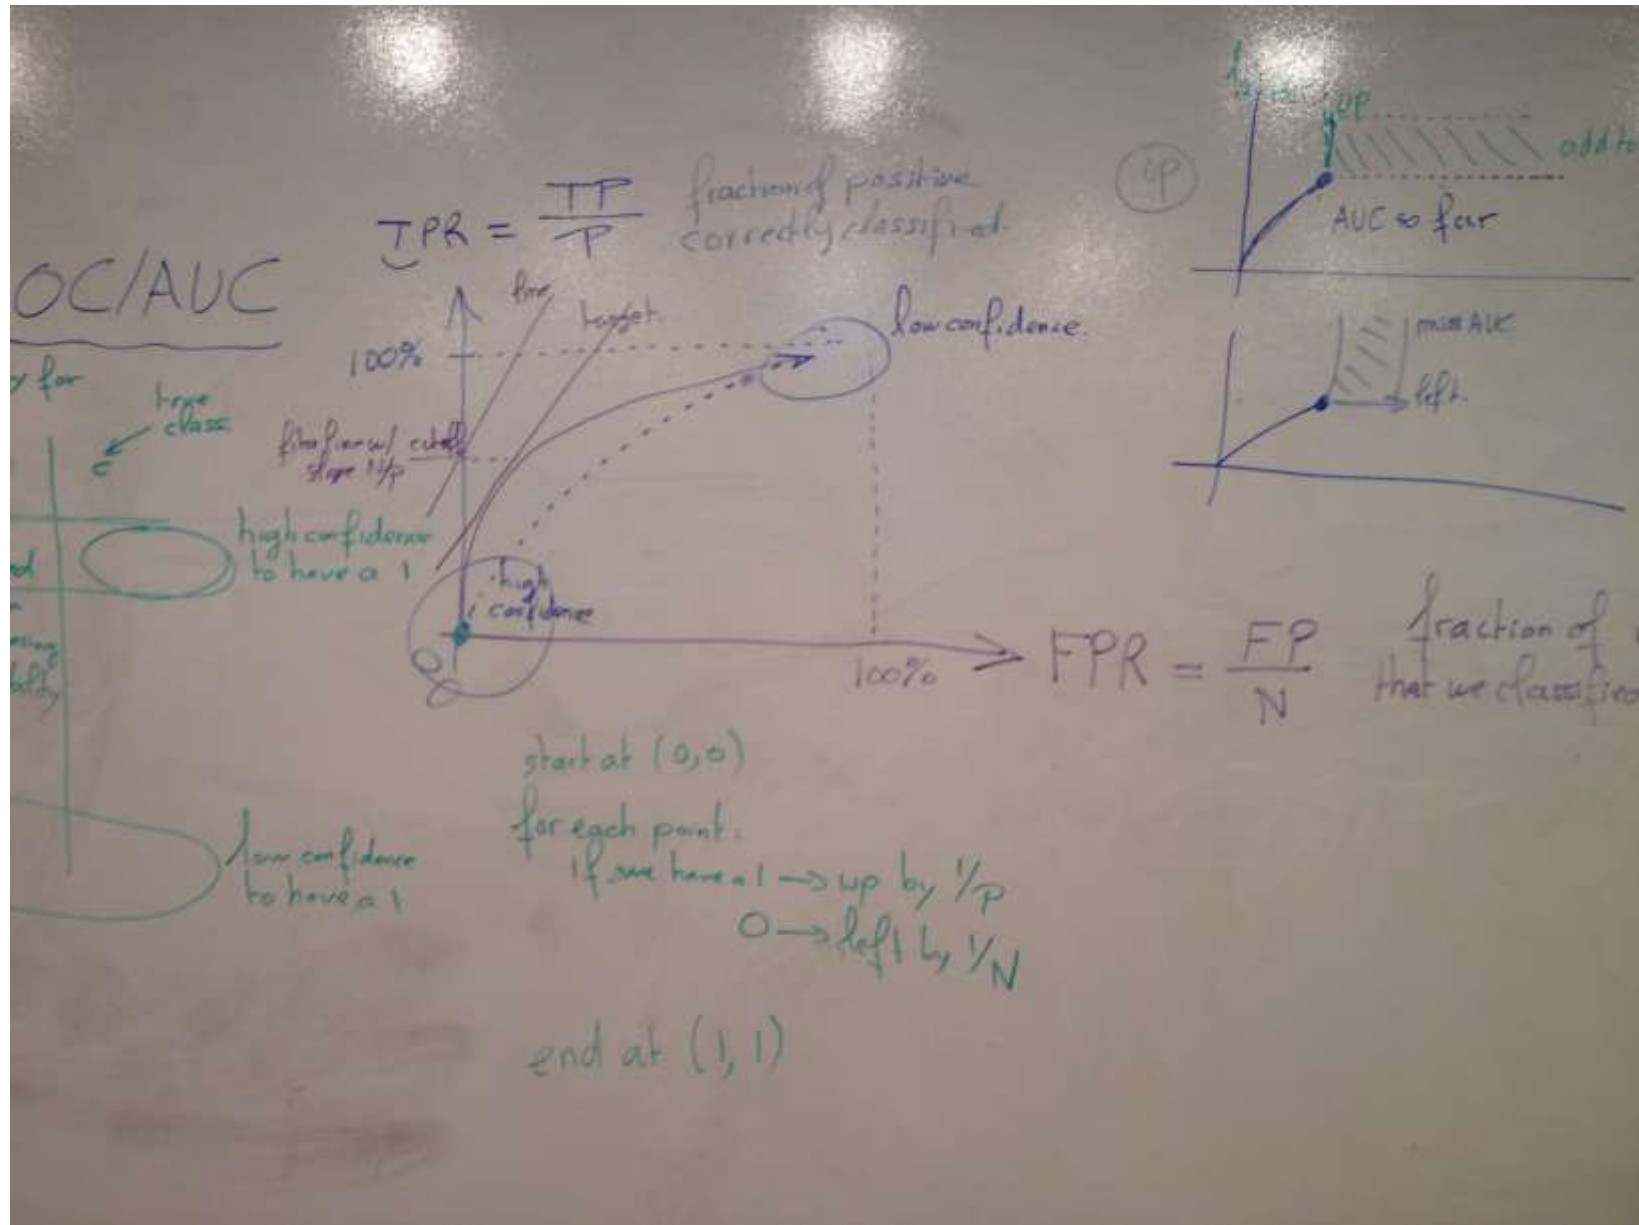 OC/AUC
y for
true
class
c
high confidence
to have a 1
low confidence
to have a 1
TPR = TP/P
fraction of positive
correctly classified.
line
target.
100%
fit a line w/
slope N/P
cutoff
low confidence.
high
confidence
100%
FPR = FP/N
fraction of
that we classified
start at (0,0)
for each point:
if we have a 1 → up by 1/P
0 → left by 1/N
end at (1,1)
up
add to
AUC so far
miss AUC
left.